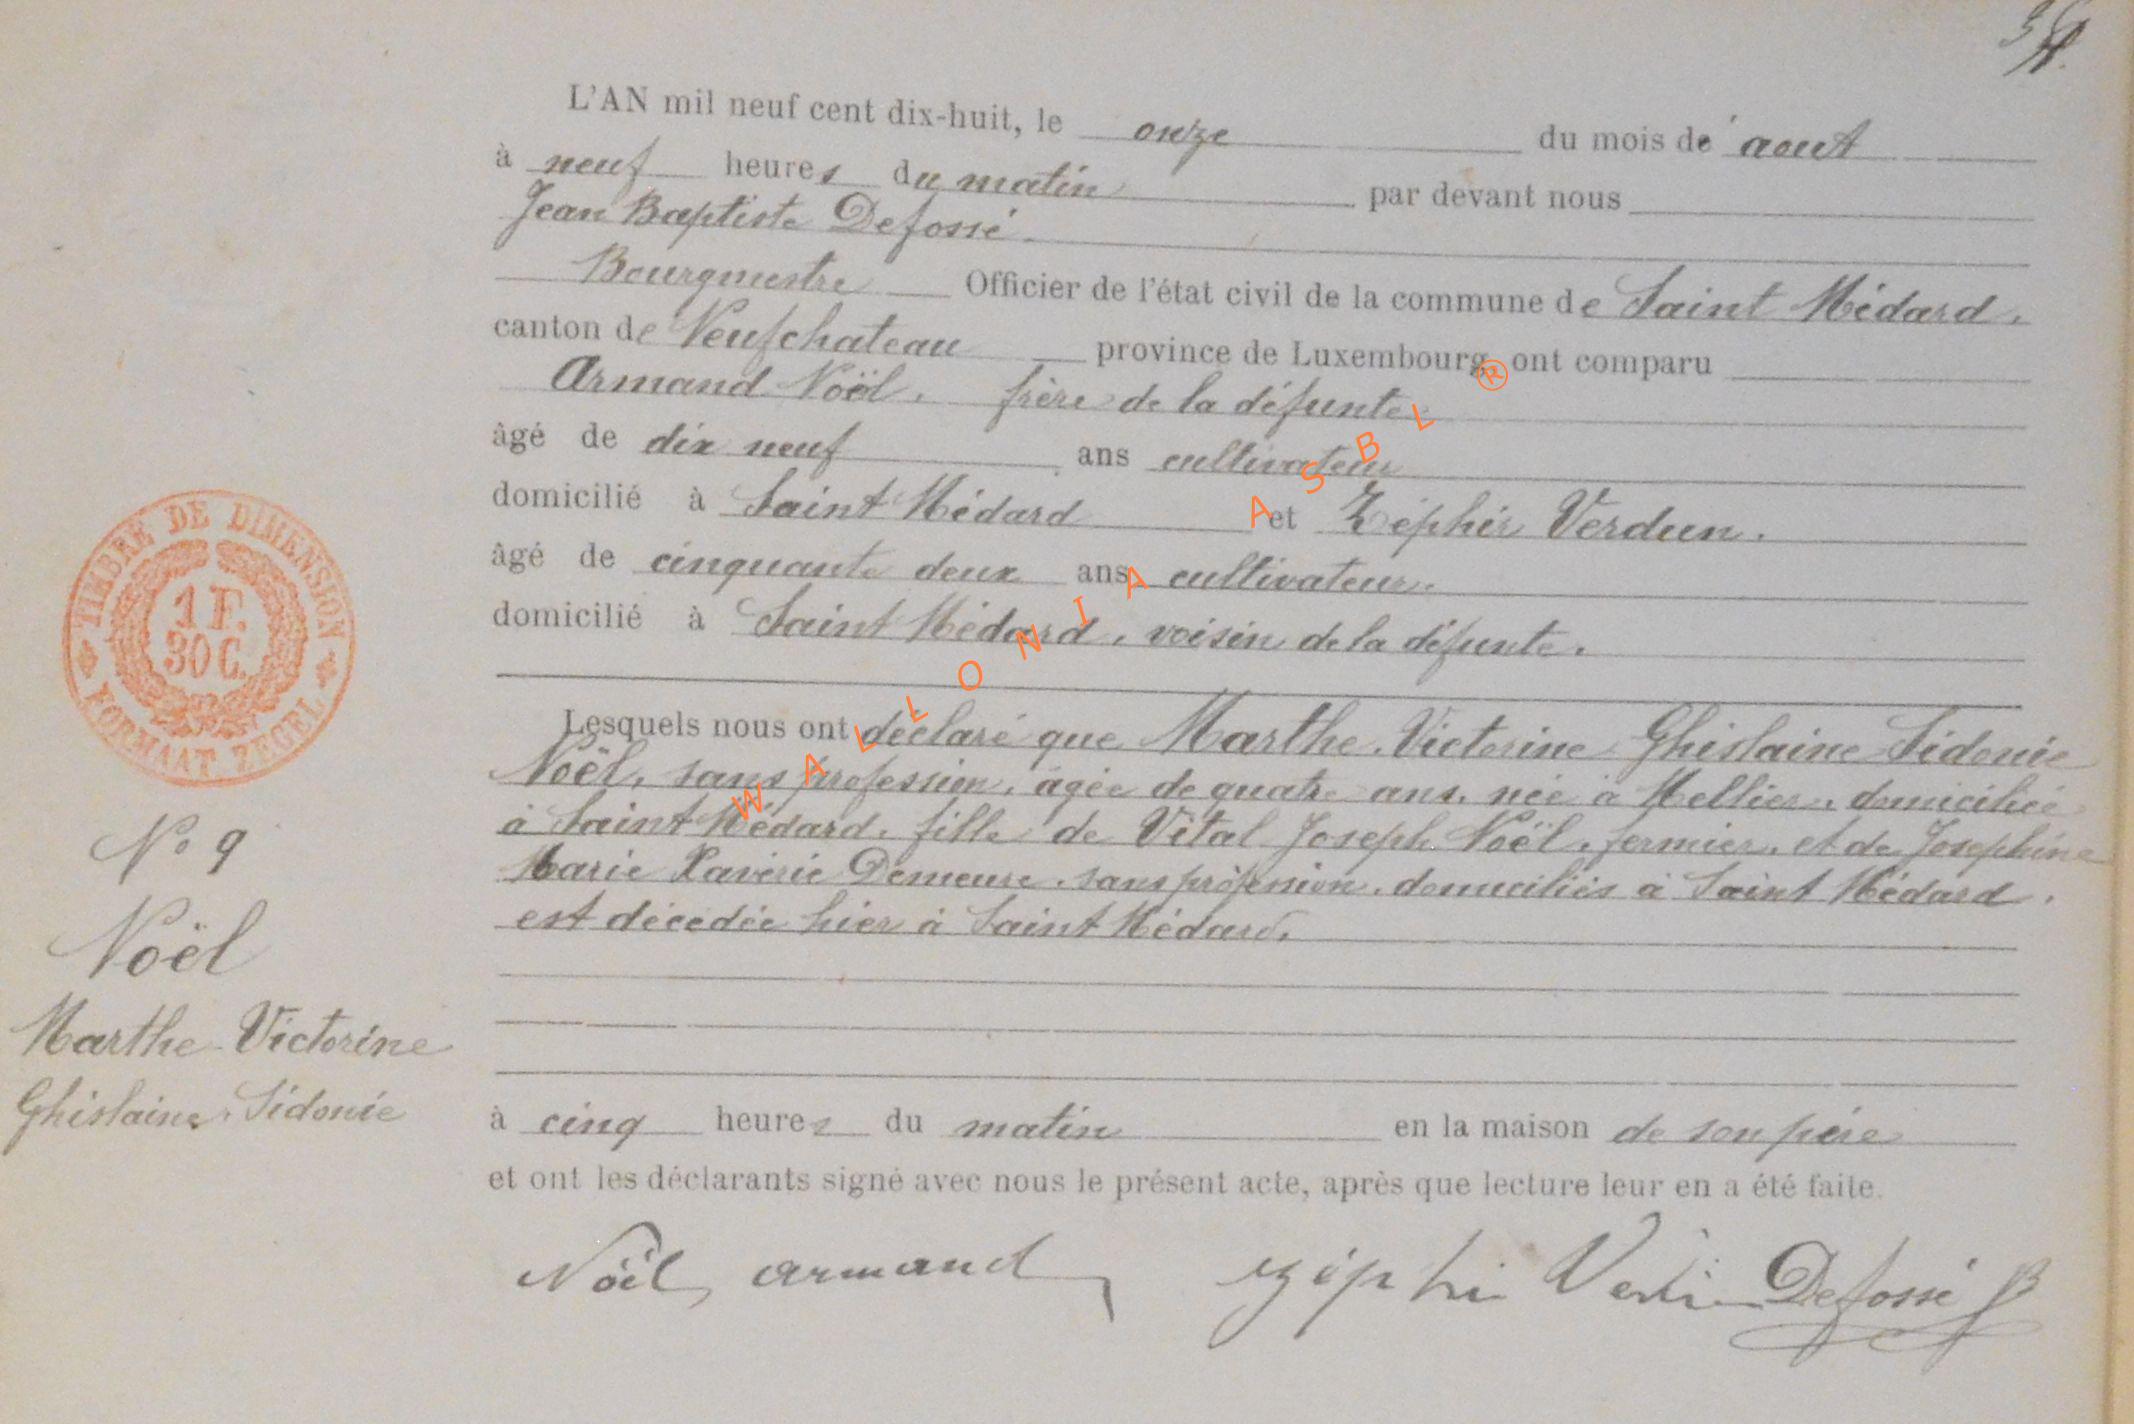 L'AN mil neuf cent dix-huit, le onze du mois de aout
à neuf heures du matin par devant nous
Jean Baptiste Defossé
Bourgmestre Officier de l'état civil de la commune de Saint Médard.
canton de Neufchateau province de Luxembourg, ont comparu
Armand Noël. frère de la défunte.
âgé de dix neuf ans cultivateur
domicilié à Saint Médard et Zéphir Verdun.
âgé de cinquante deux ans cultivateur.
domicilié à Saint Médard, voisin de la défunte.
Lesquels nous ont déclaré que Marthe Victorine Ghislaine Sidonie
Noël, sans profession, agée de quatre ans, née à Mellier, domiciliée
à Saint Médard, fille de Vital Joseph Noël, fermier, et de Josephine
Marie Xavérie Demeure, sans profession, domiciliés à Saint Médard.
est décédée hier à Saint Médard.
à cinq heures du matin en la maison de son père
et ont les déclarants signé avec nous le présent acte, après que lecture leur en a été faite.
Noël, armand Defossé JB
TIMBRE DE DIMENSION
1 F.
30 C.
FORMAAT ZEGEL
N° 9
Noël
Marthe Victorine
Ghislaine Sidonie
WALLONIA ASBL ®